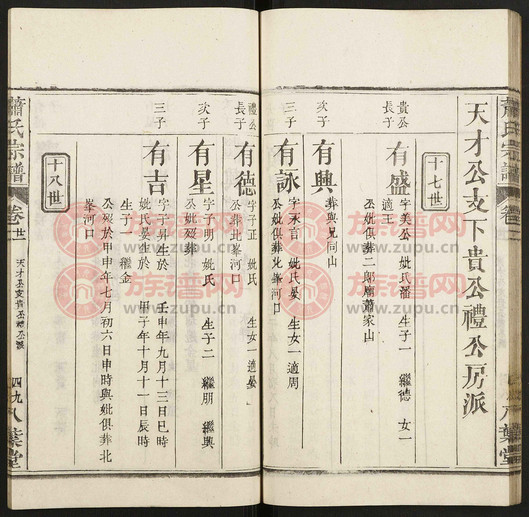 天才公支下貴公禮公房派
十七世
貴公長子
有盛
字美公 妣氏潘 生子一 繼德 女一
適王
公妣俱葬二郎廟蕭家山
次子
有興
葬與兄同山
三子
有詠
字永言 妣氏晏 生女一適周
公妣俱葬北峯河口
禮公長子
有德
字子正 妣氏 生女一適晏
公葬北峯河口
次子
有星
字子明 妣氏 生子二 繼朋 繼興
公妣葬
三子
有吉
字子昇生於 壬申年九月十三日巳時
妣氏晏生於 甲子年十月十一日辰時
生子一 繼金
公歿於甲申年七月初六日申時與妣俱葬北
峯河口
十八世
蕭氏宗譜
卷廿一
天才公支貴公禮公派
四九
八葉堂
蕭氏宗譜
八葉堂
族谱网
www.zupu.cn